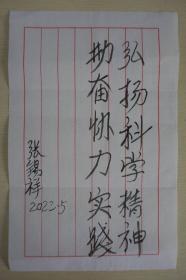 弘扬科学精神
勤奋协力实践
张锡祥
2022.5